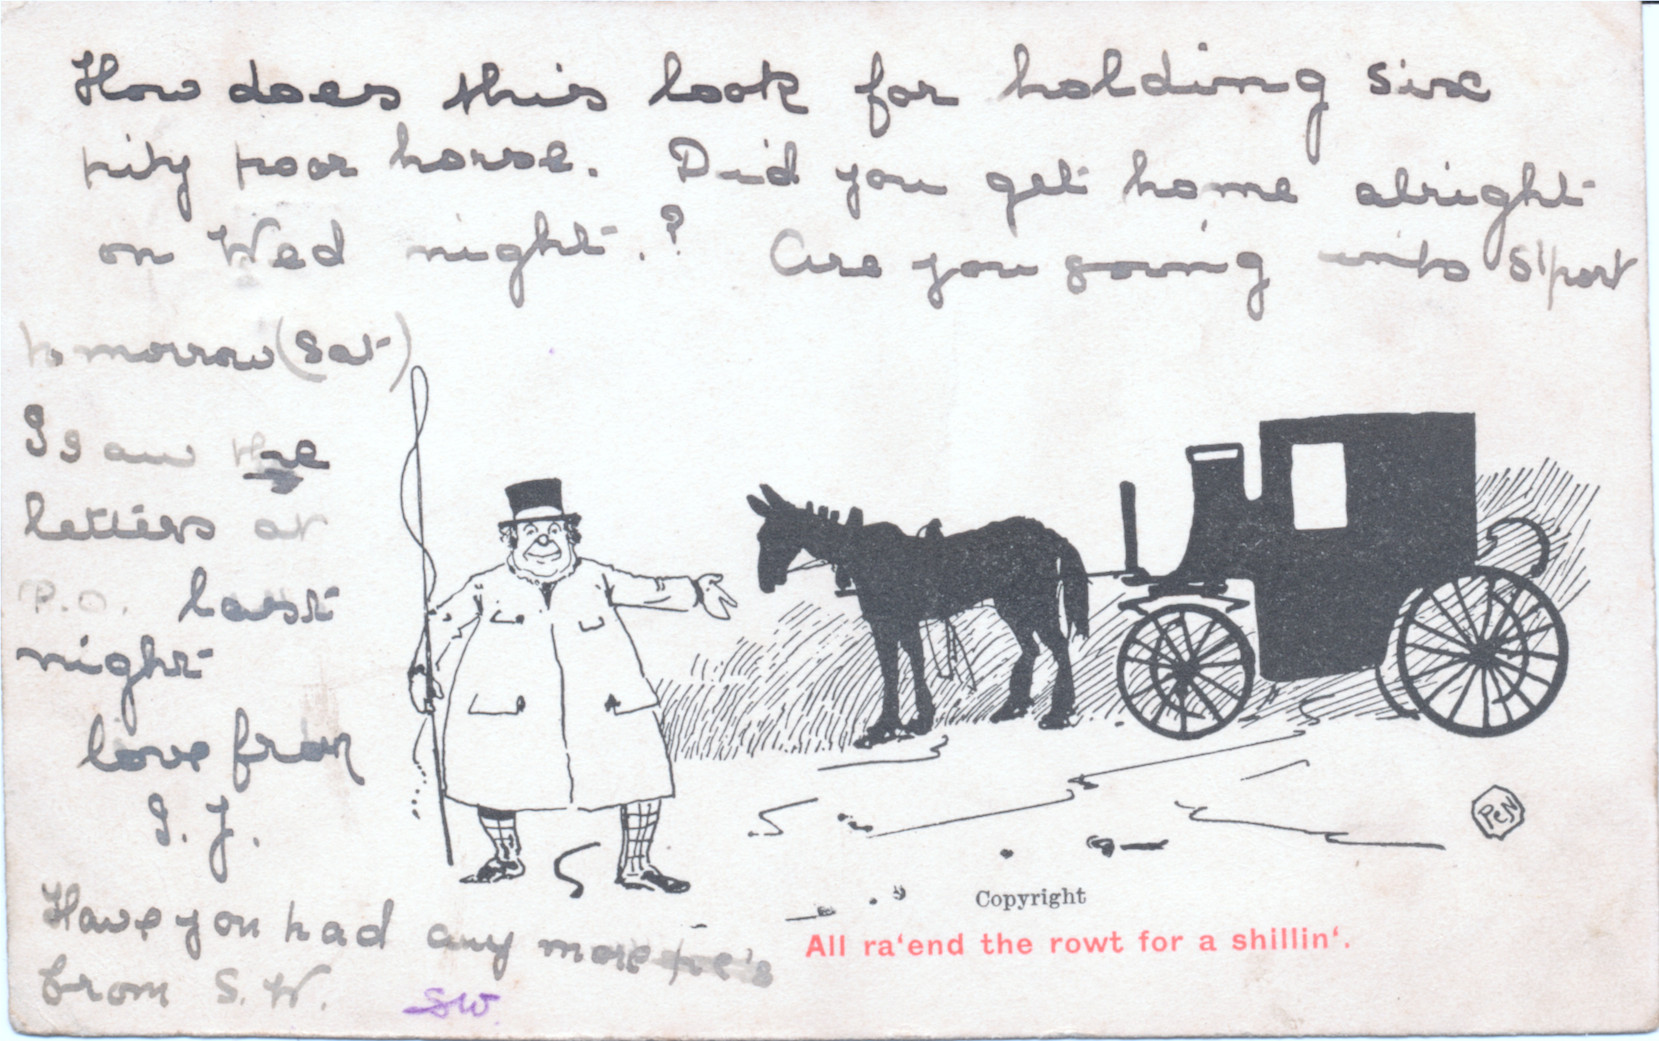 How does this look for holding six
pity poor horse. Did you get home alright
on Wed night.? Are you going into S'port
tomorrow (Sat)
I saw the
letters at
P.O. last
night
love from
I. J.
Have you had any more pc's
from S. W. SW
PEN
Copyright
All ra‘end the rowt for a shillin‘.